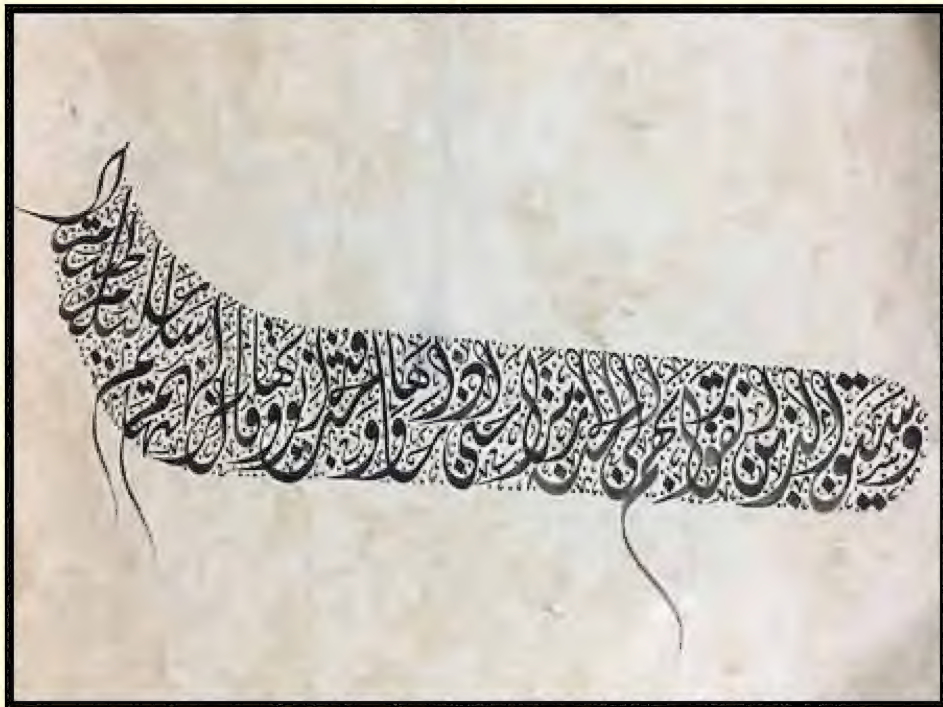 وسيق الذين اتقوا ربهم إلى الجنة زمرا حتى إذا جاءوها وفتحت أبوابها وقال لهم خزنتها سلام عليكم طبتم